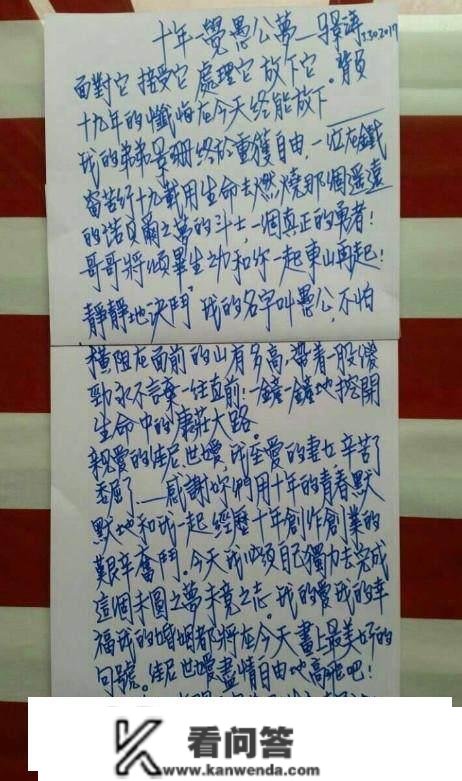 十年一覺愚公夢 — 驛濤 3302019
面對它 接受它 處理它 放下它。背負
十九年的懺悔在今天终能放下
我的弟弟景珊终於重獲自由，一位在鐵
窗苦行十九載用生命去燃燒那個遥遠
的諾貝爾之夢的斗士，一個真正的勇者！
哥哥將傾畢生之力和你一起東山再起！
靜靜地決鬥 我的名字叫愚公，不怕
橫阻在面前的山有多高，帶着一股傻
勁永不言棄一往直前！一鏟一鏟地挖開
生命中的康莊大路。
親愛的佳尼，世嬡，我至愛的妻女，辛苦了
委屈了——感謝你們用十年的青春默
默地和我一起 經歷十年創作創業的
艱辛奮鬥．今天我必須自己獨力去完成
這個未圓之夢未竟之志．我的愛我的幸
福我的婚姻都將在今天畫上最美好的
句號。佳尼世嬡盡情自由地高飛吧！
看问答
www.kanwenda.com